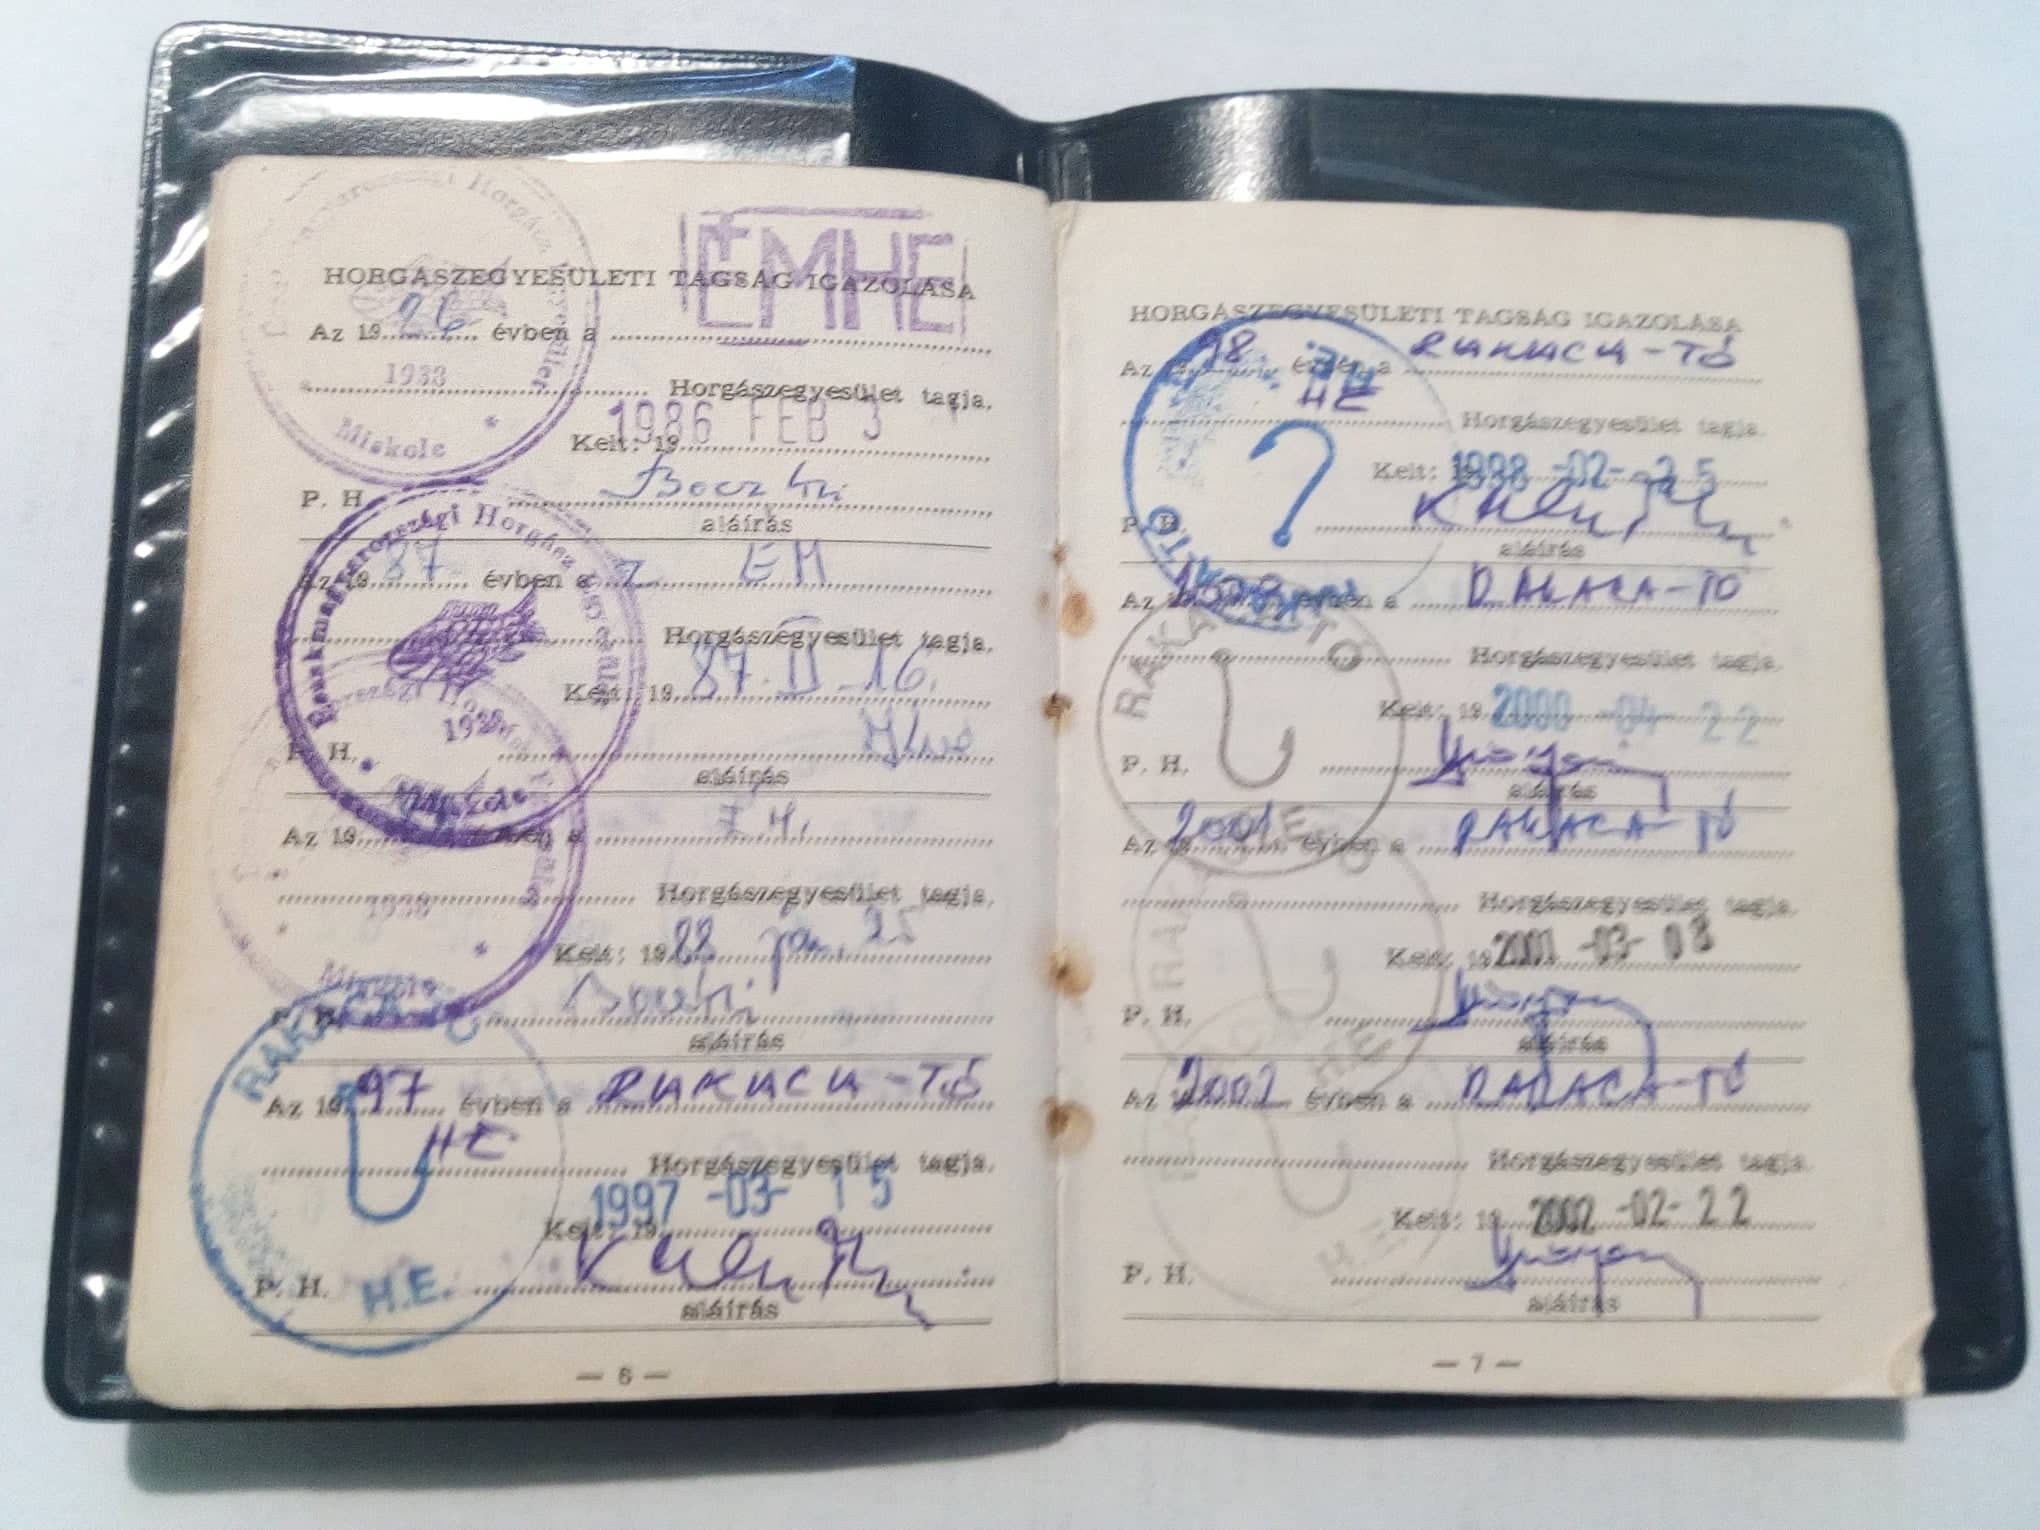 HORGÁSZEGYESÜLETI TAGSÁG IGAZOLÁSA
ÉMHE
Az 19 86 évben a
Horgászegyesület tagja.
1986 FEB 3
Kelt: 19
P. H.
aláírás
Horgász
1933
Miskolc
Az 19 87 évben a EM
Horgászegyesület tagja.
Kelt: 19 87. II. 16.
P. H.
aláírás
Északmagyarországi Horgász Egyesület
Az 19 évben a
Horgászegyesület tagja.
Kelt: 19 88 jan. 25
P. H.
aláírás
Az 19 97 évben a RAKACA-TÓ
HE
Horgászegyesület tagja.
1997 -03- 15
Kelt: 19
P. H.
H.E.
aláírás
— 6 —
HORGÁSZEGYESÜLETI TAGSÁG IGAZOLÁSA
Az 98 évben a RAKACA-TÓ
HE
Horgászegyesület tagja.
Kelt: 1998 -02- 25
P. H.
aláírás
Az évben a RAKACA-TÓ
RAKACA TÓ
Horgászegyesület tagja.
Kelt: 19 2000 -04- 22
P. H.
aláírás
Az 2001 évben a RAKACA-TÓ
Horgászegyesület tagja.
Kelt: 19 2001 -03- 08
P. H.
aláírás
HE
Az 2002 évben a RAKACA-TÓ
Horgászegyesület tagja.
Kelt: 2002 -02- 22
P. H.
H.E.
aláírás
— 7 —